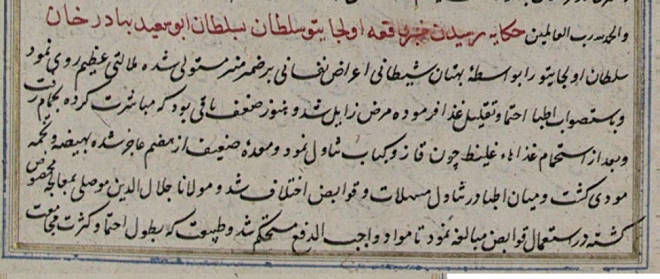 والحمد لله رب العالمین حکایة رسیدن خبر واقعه اولجایتو سلطان بسلطان ابوسعید بهادر خان
سلطان اولجایتو را بواسطهٔ بهتان شیطانی اعراض نفسانی بر ضمیر منیر مستولی شده ملالتی عظیم روی نمود
و باستصواب اطبا احتما و تقلیل غذا فرموده مرض زایل شد و هنوز ضعف باقی بود که مباشرت کرده بحمام رفت
و بعد از استحمام غذاهاء غلیظ چون قاز و کباب تناول نمود و معدهٔ ضعیف از هضم عاجز شده بهیضه و تخمه
مودی کشت و میان اطبا در تناول مسهلات و قوابض اختلاف شد و مولانا جلال الدین موصلی بمعالجه مخصوص
کشته در استعمال قوابض مبالغه نمود تا مواد واجب الدفع مستحکم شد و طبیعت که بطول احتما و کثرت مجامعت